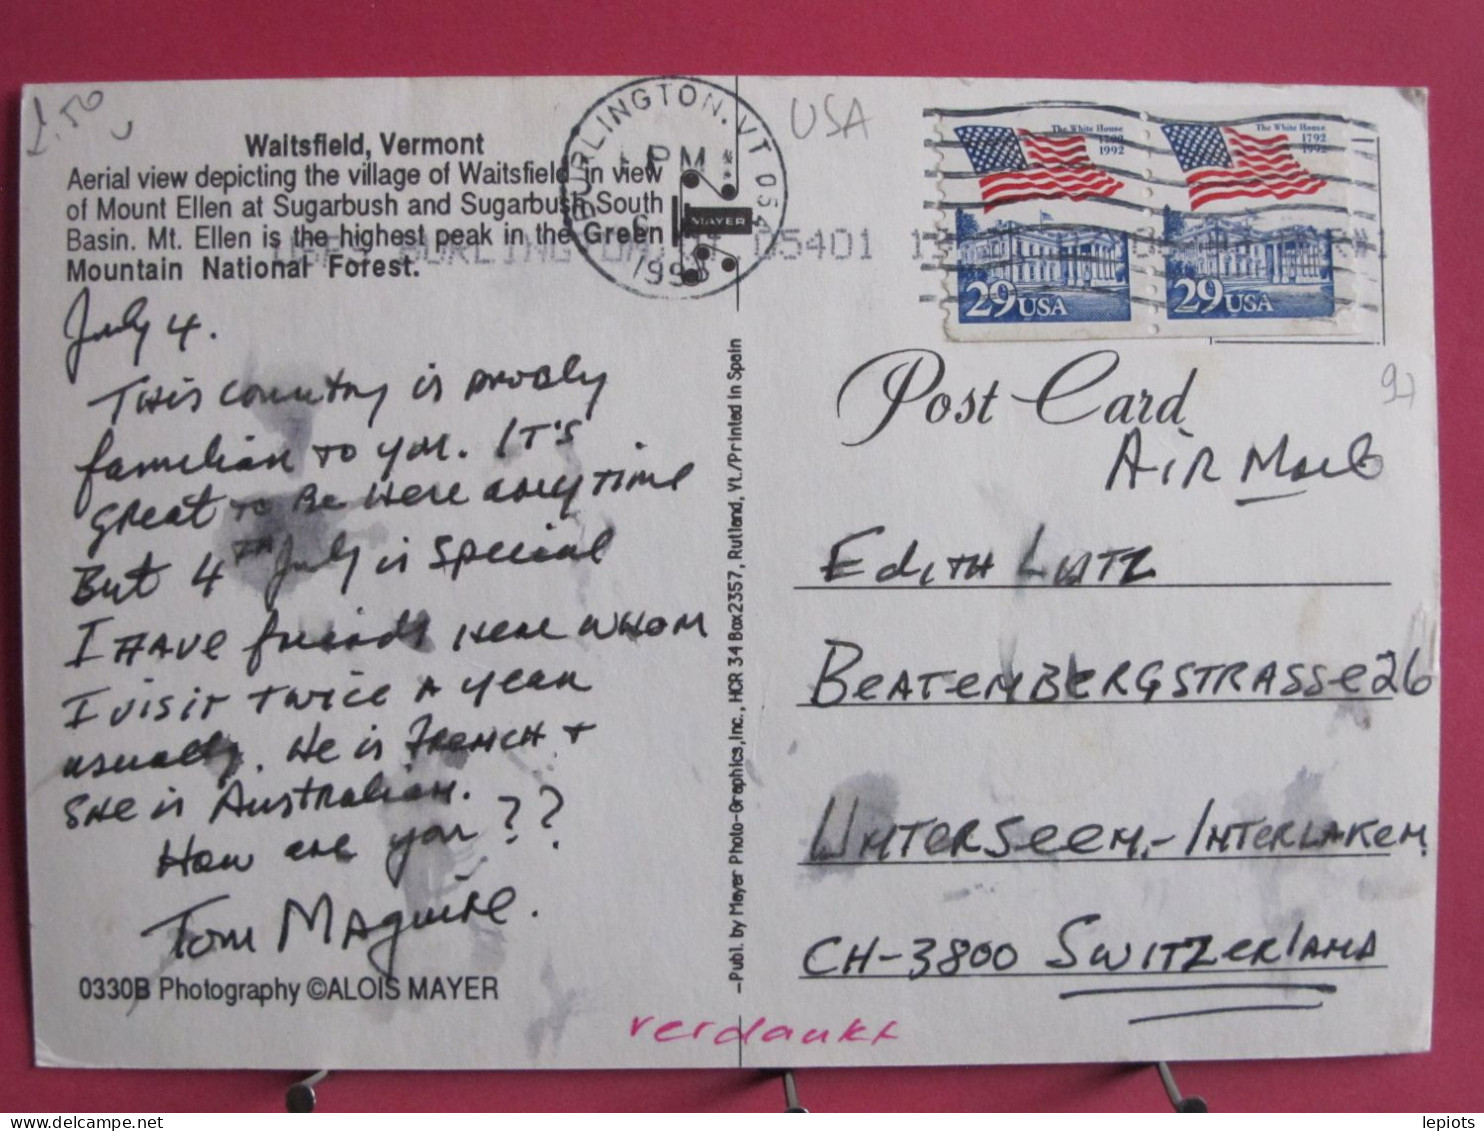 1,50
Waitsfield, Vermont
Aerial view depicting the village of Waitsfield in view
of Mount Ellen at Sugarbush and Sugarbush South
Basin. Mt. Ellen is the highest peak in the Green
Mountain National Forest.
July 4.
This country is probly
familiar to you. It's
great to be here any time
But 4th July is special
I have friends here whom
I visit twice a year
usually. He is French +
She is Australian.
How are you??
Tom Maguire.
0330B Photography ©ALOIS MAYER
BURLINGTON, VT 054
PM
6
MAYER
05401
USA
The White House
1792
1992
29 USA
The White House
1792
1992
29 USA
–Publ. by Mayer Photo-Graphics, Inc., HCR 34 Box 2357, Rutland, Vt./Printed in Spain
Post Card
97
Air Mail
Edith Lutz
Beatenbergstrasse 26
Unterseen – Interlaken
CH-3800 Switzerland
verdankt
lepiots